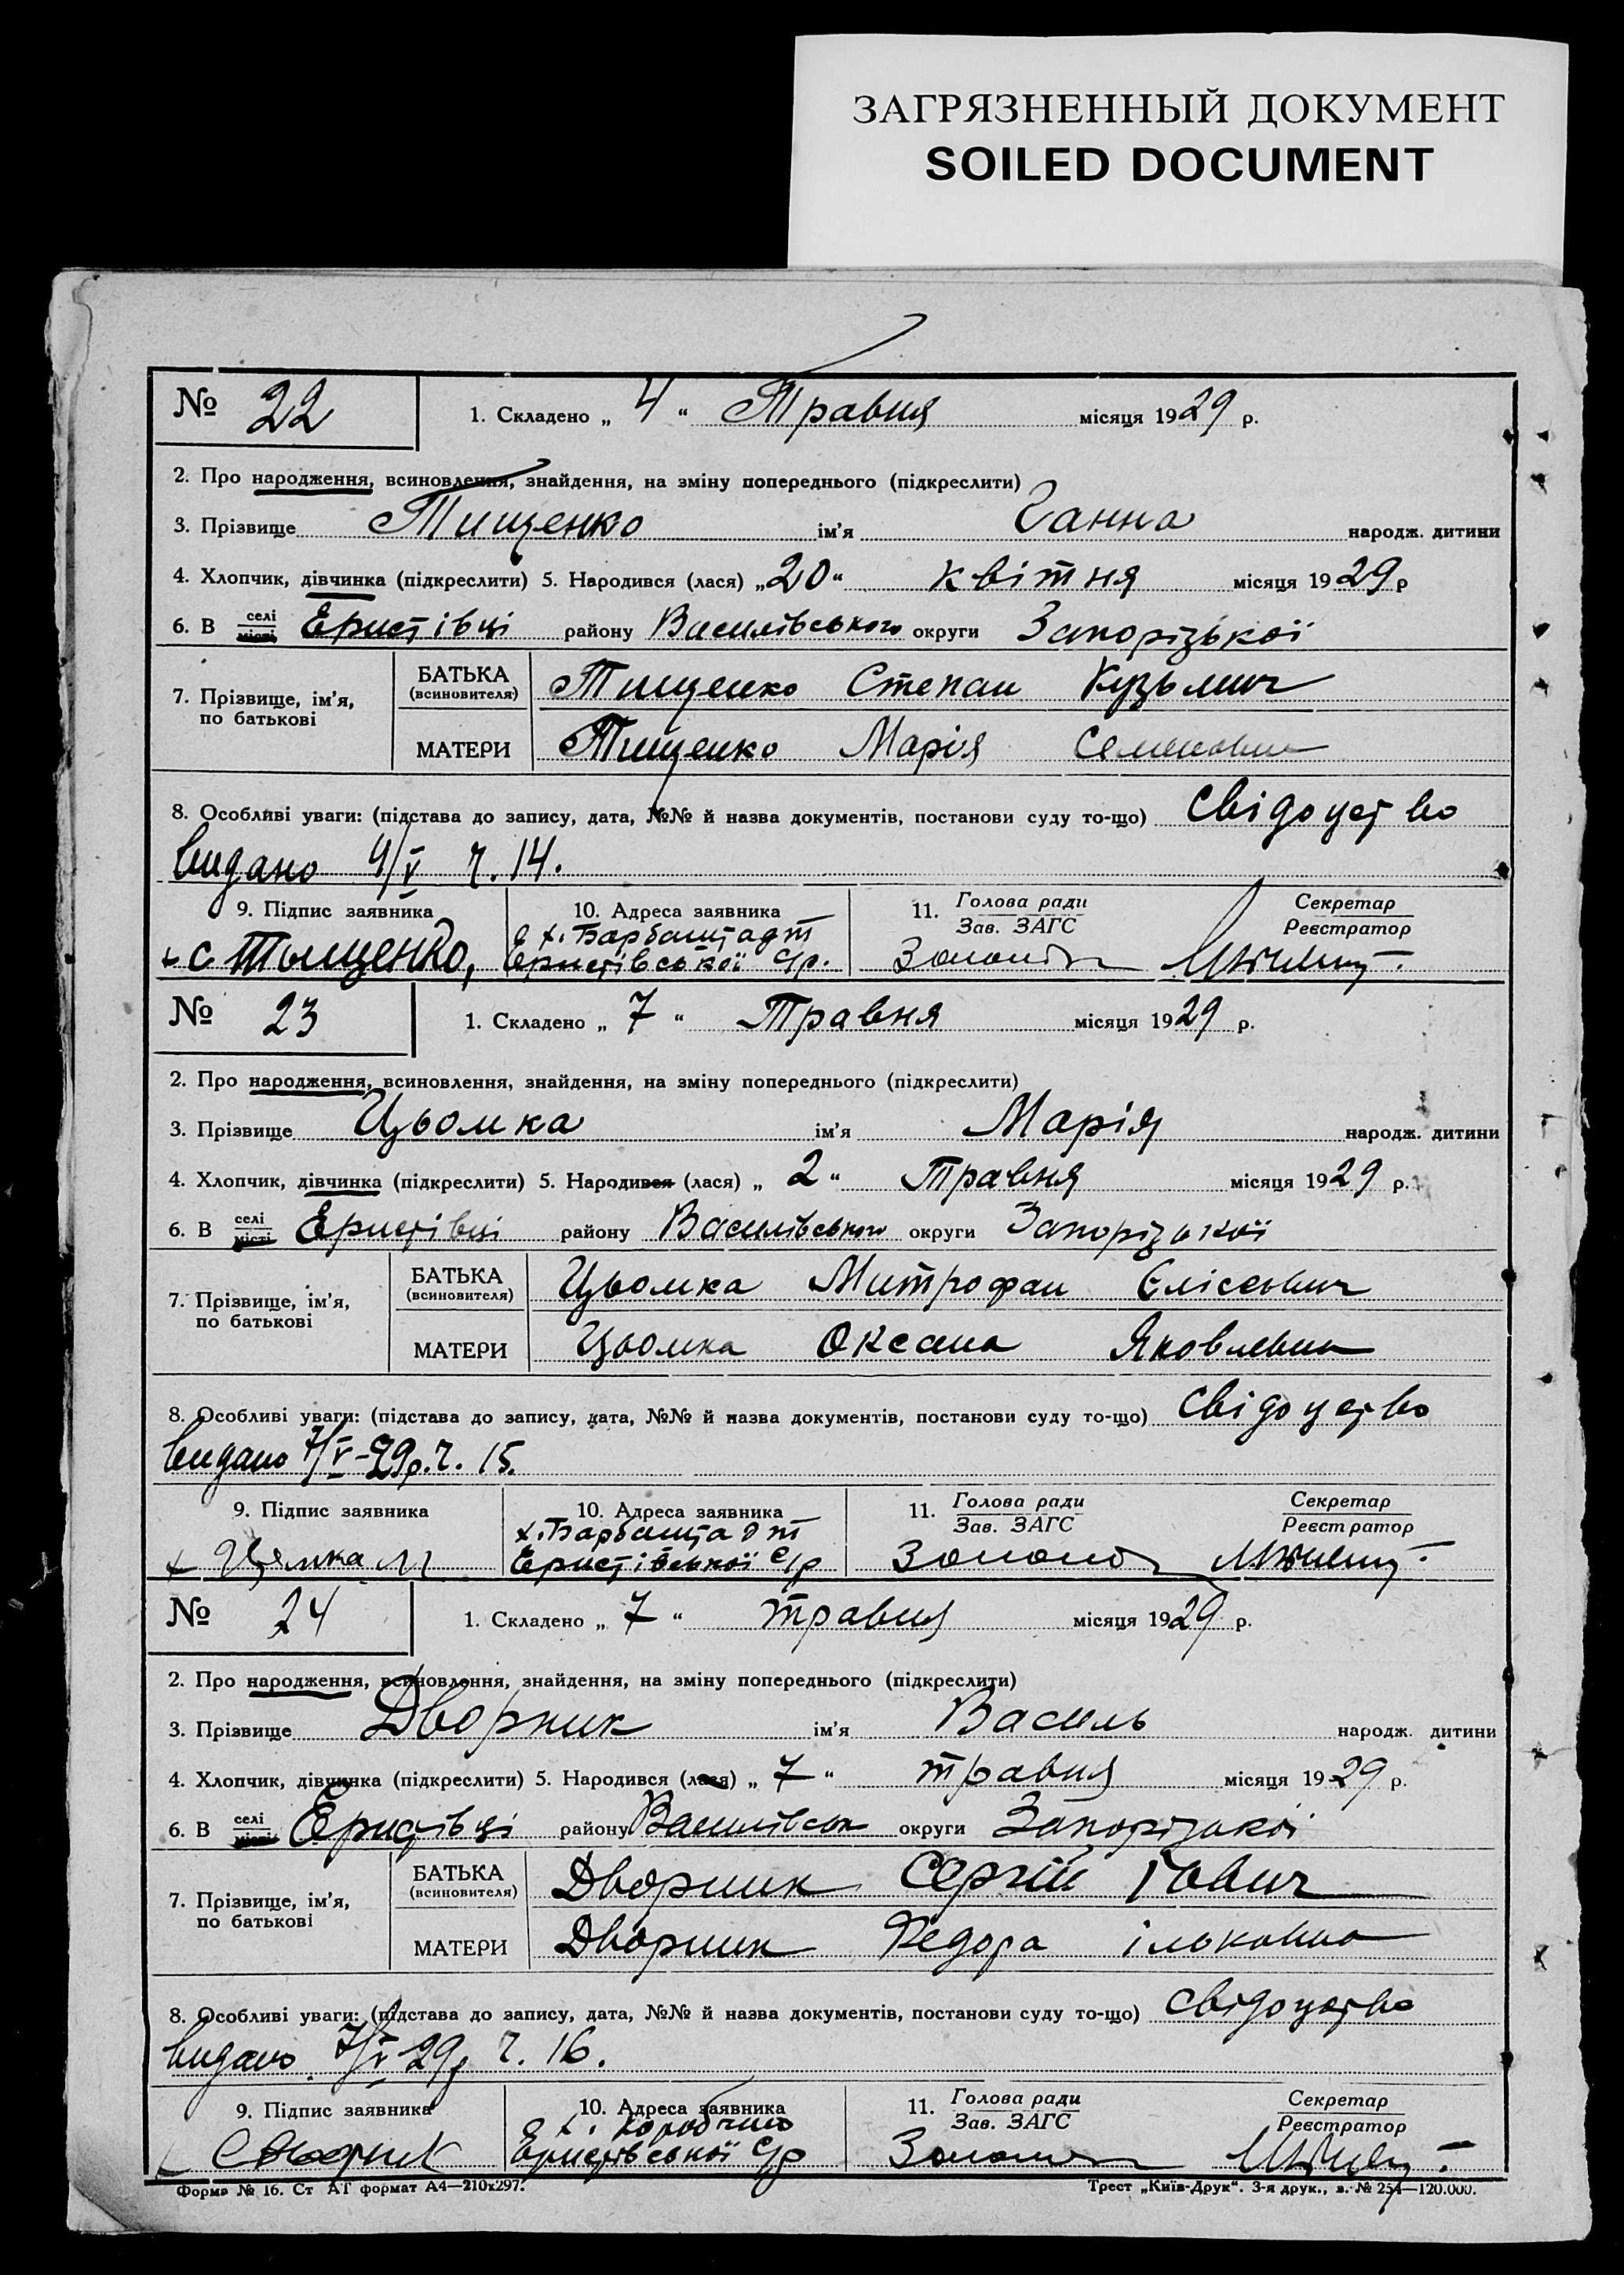 ЗАГРЯЗНЕННЫЙ ДОКУМЕНТ
SOILED DOCUMENT
№ 22 1. Складено „ 4 “ Травня місяця 1929 р.
2. Про народження, всиновлення, знайдення, на зміну попереднього (підкреслити)
3. Прізвище Тищенко ім'я Ганна народж. дитини
4. Хлопчик, дівчинка (підкреслити) 5. Народився (лася) „20“ квітня місяця 1929 р
6. В селі місті Еристівці району Василівського округи Запорізької
7. Прізвище, ім'я, по батькові
БАТЬКА (всиновителя) Тищенко Степан Кузьмич
МАТЕРИ Тищенко Марія Семеновна
8. Особливі уваги: (підстава до запису, дата, №№ й назва документів, постанови суду то-що) Свідоцтво
видано 4/V ч. 14.
9. Підпис заявника 10. Адреса заявника 11. Голова ради Зав. ЗАГС Секретар Реєстратор
х. Барбаштадт
с Тыщенко, Еристівської с/р.
№ 23 1. Складено „ 7 “ Травня місяця 1929 р.
2. Про народження, всиновлення, знайдення, на зміну попереднього (підкреслити)
3. Прізвище Цьомка ім'я Марія народж. дитини
4. Хлопчик, дівчинка (підкреслити) 5. Народився (лася) „ 2 “ Травня місяця 1929 р.
6. В селі місті Еристівці району Василівського округи Запорізької
7. Прізвище, ім'я, по батькові
БАТЬКА (всиновителя) Цьомка Митрофан Єлісеєвич
МАТЕРИ Цьомка Оксана Яковлевна
8. Особливі уваги: (підстава до запису, дата, №№ й назва документів, постанови суду то-що) Свідоцтво
видано 7/V-29р. ч. 15.
9. Підпис заявника 10. Адреса заявника 11. Голова ради Зав. ЗАГС Секретар Реєстратор
х. Барбаштадт
Цямка М Еристівської с/р
№ 24 1. Складено „ 7 “ травня місяця 1929 р.
2. Про народження, всиновлення, знайдення, на зміну попереднього (підкреслити)
3. Прізвище Дворник ім'я Василь народж. дитини
4. Хлопчик, дівчинка (підкреслити) 5. Народився (лася) „ 7 “ травня місяця 1929 р.
6. В селі місті Еристівці району Василівськ округи Запорізької
7. Прізвище, ім'я, по батькові
БАТЬКА (всиновителя) Дворник Сергій
МАТЕРИ Дворник Федора Ільковна
8. Особливі уваги: (підстава до запису, дата, №№ й назва документів, постанови суду то-що) Свідоцтво
видано 7/V 29р ч. 16.
9. Підпис заявника 10. Адреса заявника 11. Голова ради Зав. ЗАГС Секретар Реєстратор
Еристівської с/р
Форма № 16. Ст АТ формат А4—210х297. Трест „Київ-Друк“. 3-я друк., з. № 254—120.000.